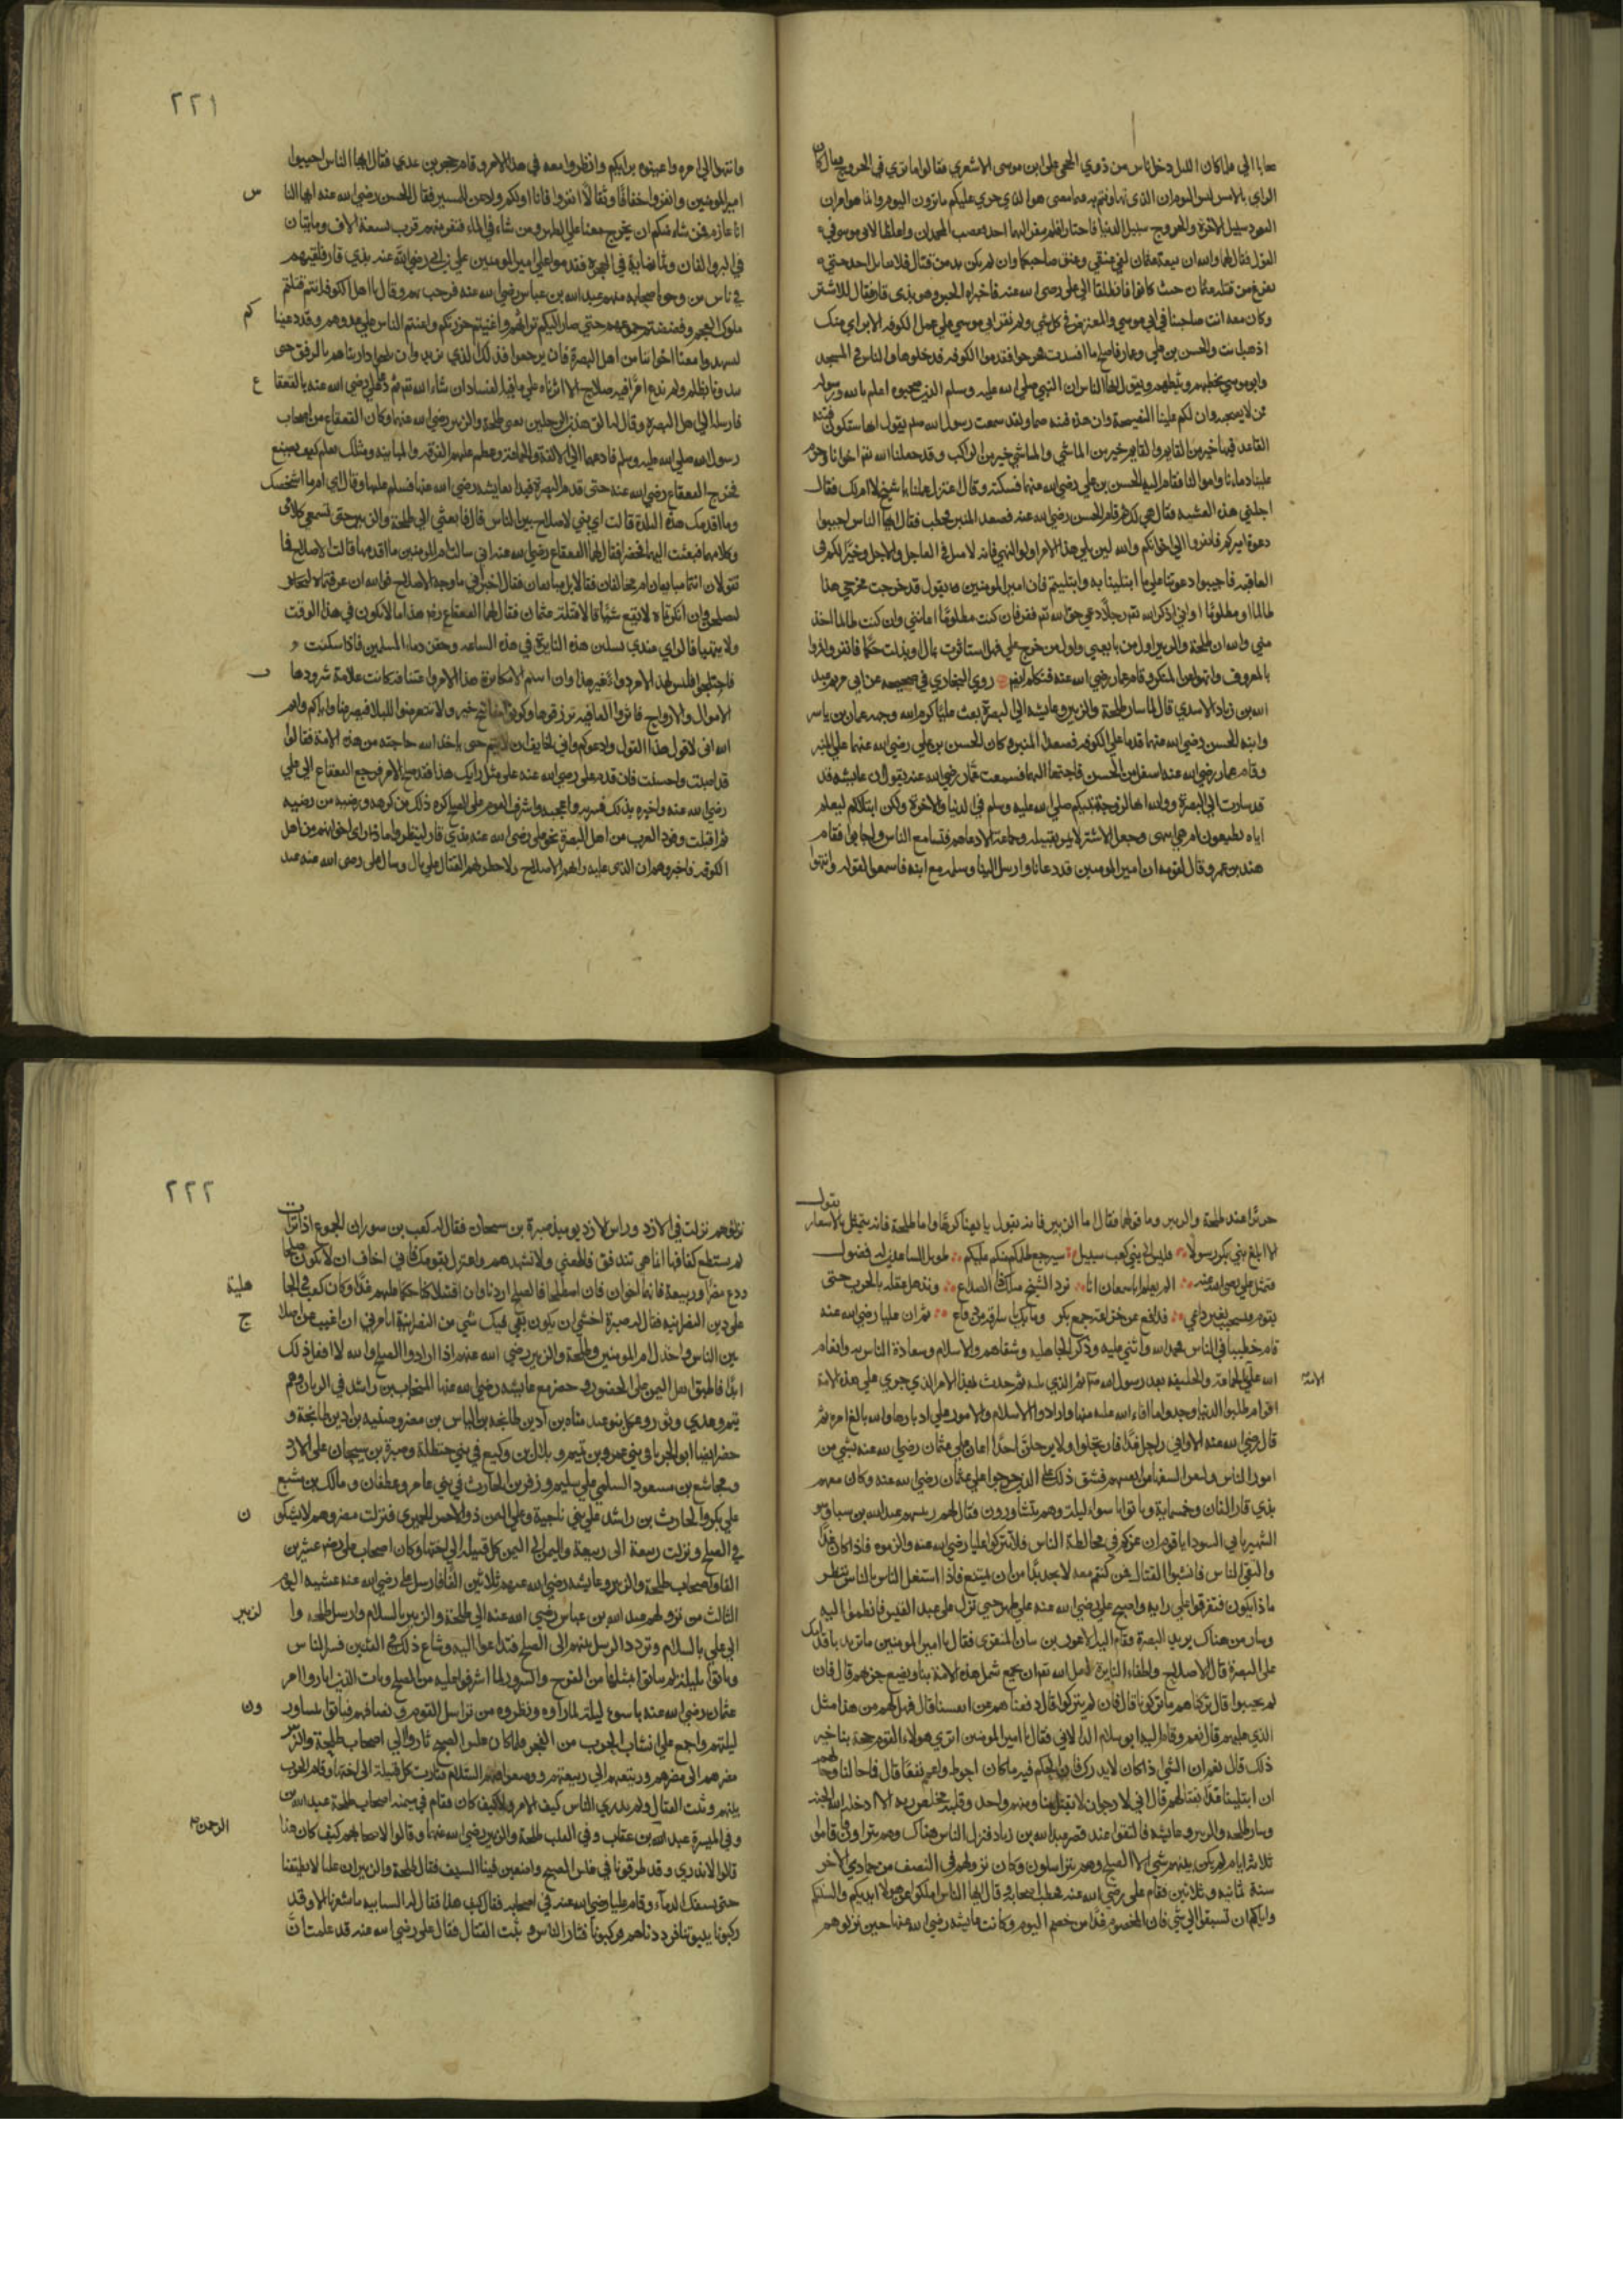 عابا الي فلما كان الليل دخل ناس من ذوي الحجي علي ابن موسى الاشعري فقالوا ما تري في الخروج فقال كان
الراي بالامس ليس اليوم ان الذي تهاونتم به فيما مضى هو الذي جري عليكم ما ترون اليوم وانما هو امران
القعود سبيل الاخرة والخروج سبيل الدنيا فاختاروا فلم ينفر اليه احد فغضب المحمدان واغلظا لابي موسى في
القول فقال لهما والله ان بيعة عثمان لفي عنقي وعنق صاحبكما وان لم يكن بد من قتال فلا نقاتل احدا حتي
نفرغ من قتلة عثمان حيث كانوا فانطلقا الي علي رضي الله عنه فاخبراه الخبر وهو بذي قار فقال للاشتر
وكان معه انت صاحبنا في ابي موسي والمعترض في كل شي ولم نقر ابي موسي علي عمل الكوفه الا برايك
اذهب انت والحسن بن علي وعمار فاصلح ما افسدت فخرجوا فقدموا الكوفه فدخلوها والناس في المسجد
وابو موسي يخطبهم ويثبطهم ويقول ايها الناس ان اصحاب النبي صلي الله عليه وسلم الذين صحبوه اعلم بالله ورسوله
ممن لا يصحبه وان لكم علينا النصيحة وان هذه فتنه صما ولقد سمعت رسول الله صلعم يقول انها ستكون فتنة
القاعد فيها خير من القايم والقايم خير من الماشي والماشي خير من الراكب وقد جعلنا الله تعم اخوانا وحرم
علينا دماءنا واموالنا فقام اليه الحسن بن علي رضي الله عنهما فسكته وقال اعتزل عملنا يا شيخ لا ام لك فقال
اجلني هذه العشيه فقال هي لك ثم قام الحسن رضي الله عنه فصعد المنبر فخطب فقال ايها الناس اجيبوا
دعوة اميركم فانفروا الي اخوانكم والله لين يلي هذا الامر اولوا النهي فانه لامثل في العاجل والاجل وخيرا لكم في
العاقبه فاجيبوا دعوتنا علي ما ابتلينا به وابتليتم فان امير المومنين يقول قد خرجت مخرجي هذا
ظالما او مظلوما واني اذكر الله تعم رجلا رعي حق الله تعم نفر فان كنت مظلوما اعانني وان كنت ظالما اخذ
مني والله ان طلحة والزبير اول من بايعني واول من خرج علي فهل استاثرت بمال او بدلت حكما فانفروا وامروا
بالمعروف وانهوا عن المنكر وقام عمار رضي الله عنه فتكلم ايضا روي البخاري في صحيحه عن ابي مريم عبد
الله بن زياد الاسدي قال لما سار طلحة والزبير وعايشه الي البصرة بعث علي كرم الله وجهه عمار بن ياسر
وابنه الحسن رضي الله عنهما قدما علي الكوفه فصعدا المنبر وكان الحسن بن علي رضي الله عنهما علي المنبر
وقام عمار رضي الله عنه اسفل من الحسن فاجتمعنا اليهما فسمعت عمار رضي الله عنه يقول ان عايشه قد
قد سارت الي البصرة ووالله انها لزوجة نبيكم صلي الله عليه وسلم في الدنيا والاخرة ولكن ابتلاكم ليعلم
اياه تطيعون ام هي انتهى وجعل الاشتر لا يمر بقبيلة وجماعة الا دعاهم فتسامع الناس واجابوا فقام
هند بن عمرو وقال لقومه ان امير المومنين قد دعانا وارسل الينا رسله مع ابنه فاسمعوا لقوله وانتهوا
٢٢١
وانتهوا الي امره واعينوه برايكم وانظروا معه في هذا الامر وقام حجر بن عدي فقال ايها الناس اجيبوا
امير المومنين وانفروا خفافا وثقالا انفروا فانا اولكم ولا عن المسير فقال الحسن رضي الله عنه ايها النا س
انا عازم فمن شاء منكم ان يخرج معنا علي الظهر ومن شاء في الماء فنفر منهم قرب تسعة الاف ومايتان
في البر والفان وثمانماية في البحر فقدموا علي امير المومنين علي بن ابي رضي الله عنه بذي قار فلقيهم
في ناس من وجوه اصحابه منهم عبد الله بن عباس رضي الله عنه فرحب بهم وقال يا اهل الكوفة انتم قتلتم
ملوك العجم وفضضتم جموعهم حتي صار اليكم تراثهم واغنيتم حوزتكم واعنتم الناس علي عدوهم وقد دعينا كم
لتشهدوا معنا اخواننا من اهل البصرة فان يرجعوا فذلك الذي نريد وان يلجوا داويناهم بالرفق حتى
يبدونا بظلم ولم ندع امرا فيه صلاح الا اثرناه علي ما فيه الفساد ان شاء الله تعم ثم دعي علي رضي الله عنه بالقعقا ع
فارسله الي اهل البصرة وقال له الق هذين الرجلين يعني طلحة والزبير رضي الله عنهما وكان القعقاع من اصحاب
رسول الله صلي الله عليه وسلم فادعهما الي الالفة والجماعة وعظم عليهم الفرقة والمباينة ومثلك يعلم كيف يصنع
فخرج القعقاع رضي الله عنه حتي قدم البصرة فبدا بعايشه رضي الله عنها فسلم عليها وقال اي امي ما اشخصك
وما اقدمك هذه البلدة قالت اي بني لاصلاح بين الناس قال فابعثي الي طلحة والزبير حتي تسمعي كلامي
وكلامهما فبعثت اليهما فحضرا فقال لهما القعقاع رضي الله عنه اني سالت ام المومنين ما اقدمها قالت الاصلاح فما
تقولان انتما متابعان ام مخالفان فقالا بل متابعان فقال اخبراني ما وجه الاصلاح فوالله ان عرفتماه
لنصلحن وان انكرتماه لا نتبع شيئا قالا قتلة عثمان فقال لهما القعقاع رضي هذا ما لا يكون في هذا الوقت
ولا يتهيا فالراي عندي تسكين هذه النايرة في هذه الساعة وحقن دماء المسلمين فاذا سكنت و
الاموال والارواح فاثروا العافية ترزقوها وكونوا مفاتيح خير ولا تتعرضوا للبلا فيصرعنا واياكم وايم
الله اني لاقول هذا القول وادعوكم واني لخايف ان لا يتم حتي ياخذ الله حاجته من هذه الامة فقالوا
قد اصبت واحسنت فان قدم علي رضي الله عنه علي مثل رايك هذا فقد صلح الامر فرجع القعقاع الي علي
رضي الله عنه واخبره بذلك فسر به واعجبه واشرف القوم علي الصلح كره ذلك من كرهه ورضيه من رضيه
ثم اقبلت وفود العرب من اهل البصرة نحو علي رضي الله عنه بذي قار لينظروا ما ذا راي اخوانهم من اهل
الكوفه فاخبروهم ان الذي عليه رايهم الاصلاح ولا خطر لهم القتال علي بال وسال علي رضي الله عنه عند
يقول
جريرا عند طلحة والزبير وما قولهما فقال اما الزبير فانه يقول بايعنا كرها واما طلحة فانه يتمثل بالاشعار
الا ابلغ بني بكر رسولا فليس الي بني كعب سبيل سيرجع ظلمكم منكم عليكم طويل الساعدين له فضول
فتمثل علي رضي الله عنه الم تعلم ابا سمعان انا نرد الشيخ مثلك ذا الصداع ونذهل عقله بالحرب حتى
يقوم فيستجيب لغير داعي فدافع عن خزاعة جمع بكر وما بك يا سراقة من دفاع ثم ان عليا رضي الله عنه
قام خطيبا في الناس فحمد الله واثني عليه وذكر الجاهلية وشقاءهم والاسلام وسعادة الناس به وانعام
الله علي الجماعة والخليفه بعد رسول الله صلعم ثم الذي يليه ثم حدث هذا الامر الذي جري علي هذه الامة الامة
اقوام طلبوا الدنيا وحسدوا ما افاء الله عليه منها وارادوا الاسلام والامور علي ادبارها والله بالغ امره ثم
قال رضي الله عنه الا واني راحل غدا فارتحلوا ولا يرحلن احدا اعان علي عثمان رضي الله عنه بشي من
امور الناس وليغن السفها عني انفسهم فشق ذلك علي الذين خرجوا علي عثمان رضي الله عنه وكان معهم
بذي قار الفان وخمسماية وباتوا باسوا ليلة وهم يتشاورون فقال لهم ريسهم عبد الله بن سبا وهو
الشهير بابن السودا يا قوم ان عزكم في مخالطة الناس فلا تتركوا عليا رضي الله عنه والزموه فاذا كان غدا
والتقي الناس فانشبوا القتال فمن كنتم معه لا يجد بدا من ان يمتنع فاذا اشتغل الناس بالناس ننظر
ما ذا يكون فتفرقوا علي رايه واصبح علي رضي الله عنه علي ظهر حتي نزل علي عبد القيس فانظموا اليه
وسار من هناك يريد البصرة وقام اليه الاعور بن بنان المنقري فقال يا امير المومنين ما تريد باقدامك
علي البصرة قال الاصلاح واطفاء النايرة لعل الله تعم ان يجمع شمل هذه الامة بنا ويضع حربهم قال فان
لم يجيبوا قال تركناهم ما تركونا قال فان لم يتركونا قال دفعناهم عن انفسنا قال فهل لهم من هذا مثل
الذي عليهم قال نعم وقام اليه ابو سلام الدالاني فقال يا امير المومنين اتري هولاء القوم حجة بنا خير
ذلك قال نعم ان الشي اذا كان لا يدرك فان الحكم فيه ما كان احوط واعم نفعا قال فما حالنا وحالهم
ان ابتلينا غدا بقتالهم قال اني لارجو ان لا يقتل منا ومنهم واحد وقلبه مخلص لله الا ادخله الله الجنة
وسار طلحة والزبير وعايشه فالتقوا عند قصر عبيد الله بن زياد فنزل الناس هناك وهم يتراوون قاموا
ثلاثة ايام لم يكن بينهم شي الا الصلح وهم يتراسلون وكان نزولهم في النصف من جمادي الاخر
سنة ثمانيه وثلاثين فقام علي رضي الله عنه فخطب اصحابه وقال ايها الناس املكوا عن هولاء ايديكم والسنتكم
واياكم ان تسبقوا الي شي فان المخصوم غدا من خصم اليوم وكانت عايشه رضي الله عنها حين نزولهم
٢٢٢
نزولهم نزلت في الازد وراس الازد يوميذ صبرة بن سيحان فقال له كعب بن سوران الجموع اذا تراءت
لم يستطع كفافها انما هي تندفق فاطعني ولا تشهدهم واعتزل بقومك فاني اخاف ان لا يكون صلحا
ودع مضر وربيعة فانهما اخوان فان اصطلحا فالصلح اردنا وان اقتتلا كنا حكما عليهم غدا وكان كعب في الجا هلية
علي دين النصرانية فقال له صبرة اخشي ان يكون بقي فيك شي من النصرانية اتامرني ان اغيب عن اصلا ح
بين الناس واخذل ام المومنين وطلحة والزبير رضي الله عنهم اذا ارادوا الصلح والله لا افعل ذلك
ابدا فاطبق اهل اليمن علي الحضور وحضر مع عايشه رضي الله عنها المنجاب بن راشد في الرباب وهم
تيم وعدي وثور وعكل بنو عبد مناه بن اد بن طابخه بن الياس بن مضر وضبة بن اد بن طابخة و
حضر ايضا ابو الجربا في بني عمرو بن تميم وهلال بن وكيع في بني حنظلة وصبرة بن سيحان علي الازد
ومجاشع بن مسعود السلمي علي سليم وزفر بن الحارث في بني عامر وغطفان ومالك بن مسمع
علي بكر والحارث بن راشد علي بني ناجية وعلي اليمن ذو الاجمر الحميري فنزلت مضر وهم لا يشكو ن
في الصلح ونزلت ربيعة الي ربيعة واليمن الي اليمن كل قبيلة الي اختها وكان اصحاب علي رضي عشرين
الفا واصحاب طلحة والزبير وعايشه رضي الله عنهم ثلاثين الفا فارسل علي رضي الله عنه عشيه اليوم
الثالث من نزولهم عبد الله بن عباس رضي الله عنه الي طلحة والزبير بالسلام وارسل طلحه وا لزبير
الي علي بالسلام وتردد الرسل بينهم الي الصلح فتداعوا اليه وشاع ذلك في الفئتين فسر الناس
وباتوا بليلة لم يباتوا بمثلها من الفرح والسرور لما اشرفوا عليه من الصلح وبات الذين اثاروا امر
عثمان رضي الله عنه باسوء ليلة لما راوه ونظروه من تراسل القوم وتصافيهم فباتوا يتشاور ون
ليلتهم واجمع علي انشاب الحرب من الفجر فلما كان غلس الصبح ثاروا الي اصحاب طلحة والزبير
مضرهم الي مضرهم وربيعتهم الي ربيعتهم ووضعوا فيهم السلاح فثارت كل قبيلة الي اختها وقام الحرب
بينهم ونشبت القتال ولم يدري الناس كيف الامر ولا كيف كان فقام في ميمنه اصحاب طلحة عبد الله بن
وفي الميسرة عبد الله بن عتاب وفي القلب طلحة والزبير رضي الله عنهما وقالوا لاصحابهم كيف كان هذا الرحمن
قالوا لا ندري وقد طرقونا في غلس الصبح واضعين فينا السيف فقال طلحة والزبير ان عليا لا يطيعنا
حتي يسفك الدماء وقام عليا رضي الله عنه في اصحابه فقال كيف هذا فقال له السبايه ما شعرنا الا وقد
ركبونا يبيوتنا فرددناهم وركبونا فثار الناس ونشبت القتال فقال علي رضي الله عنه قد علمت ان